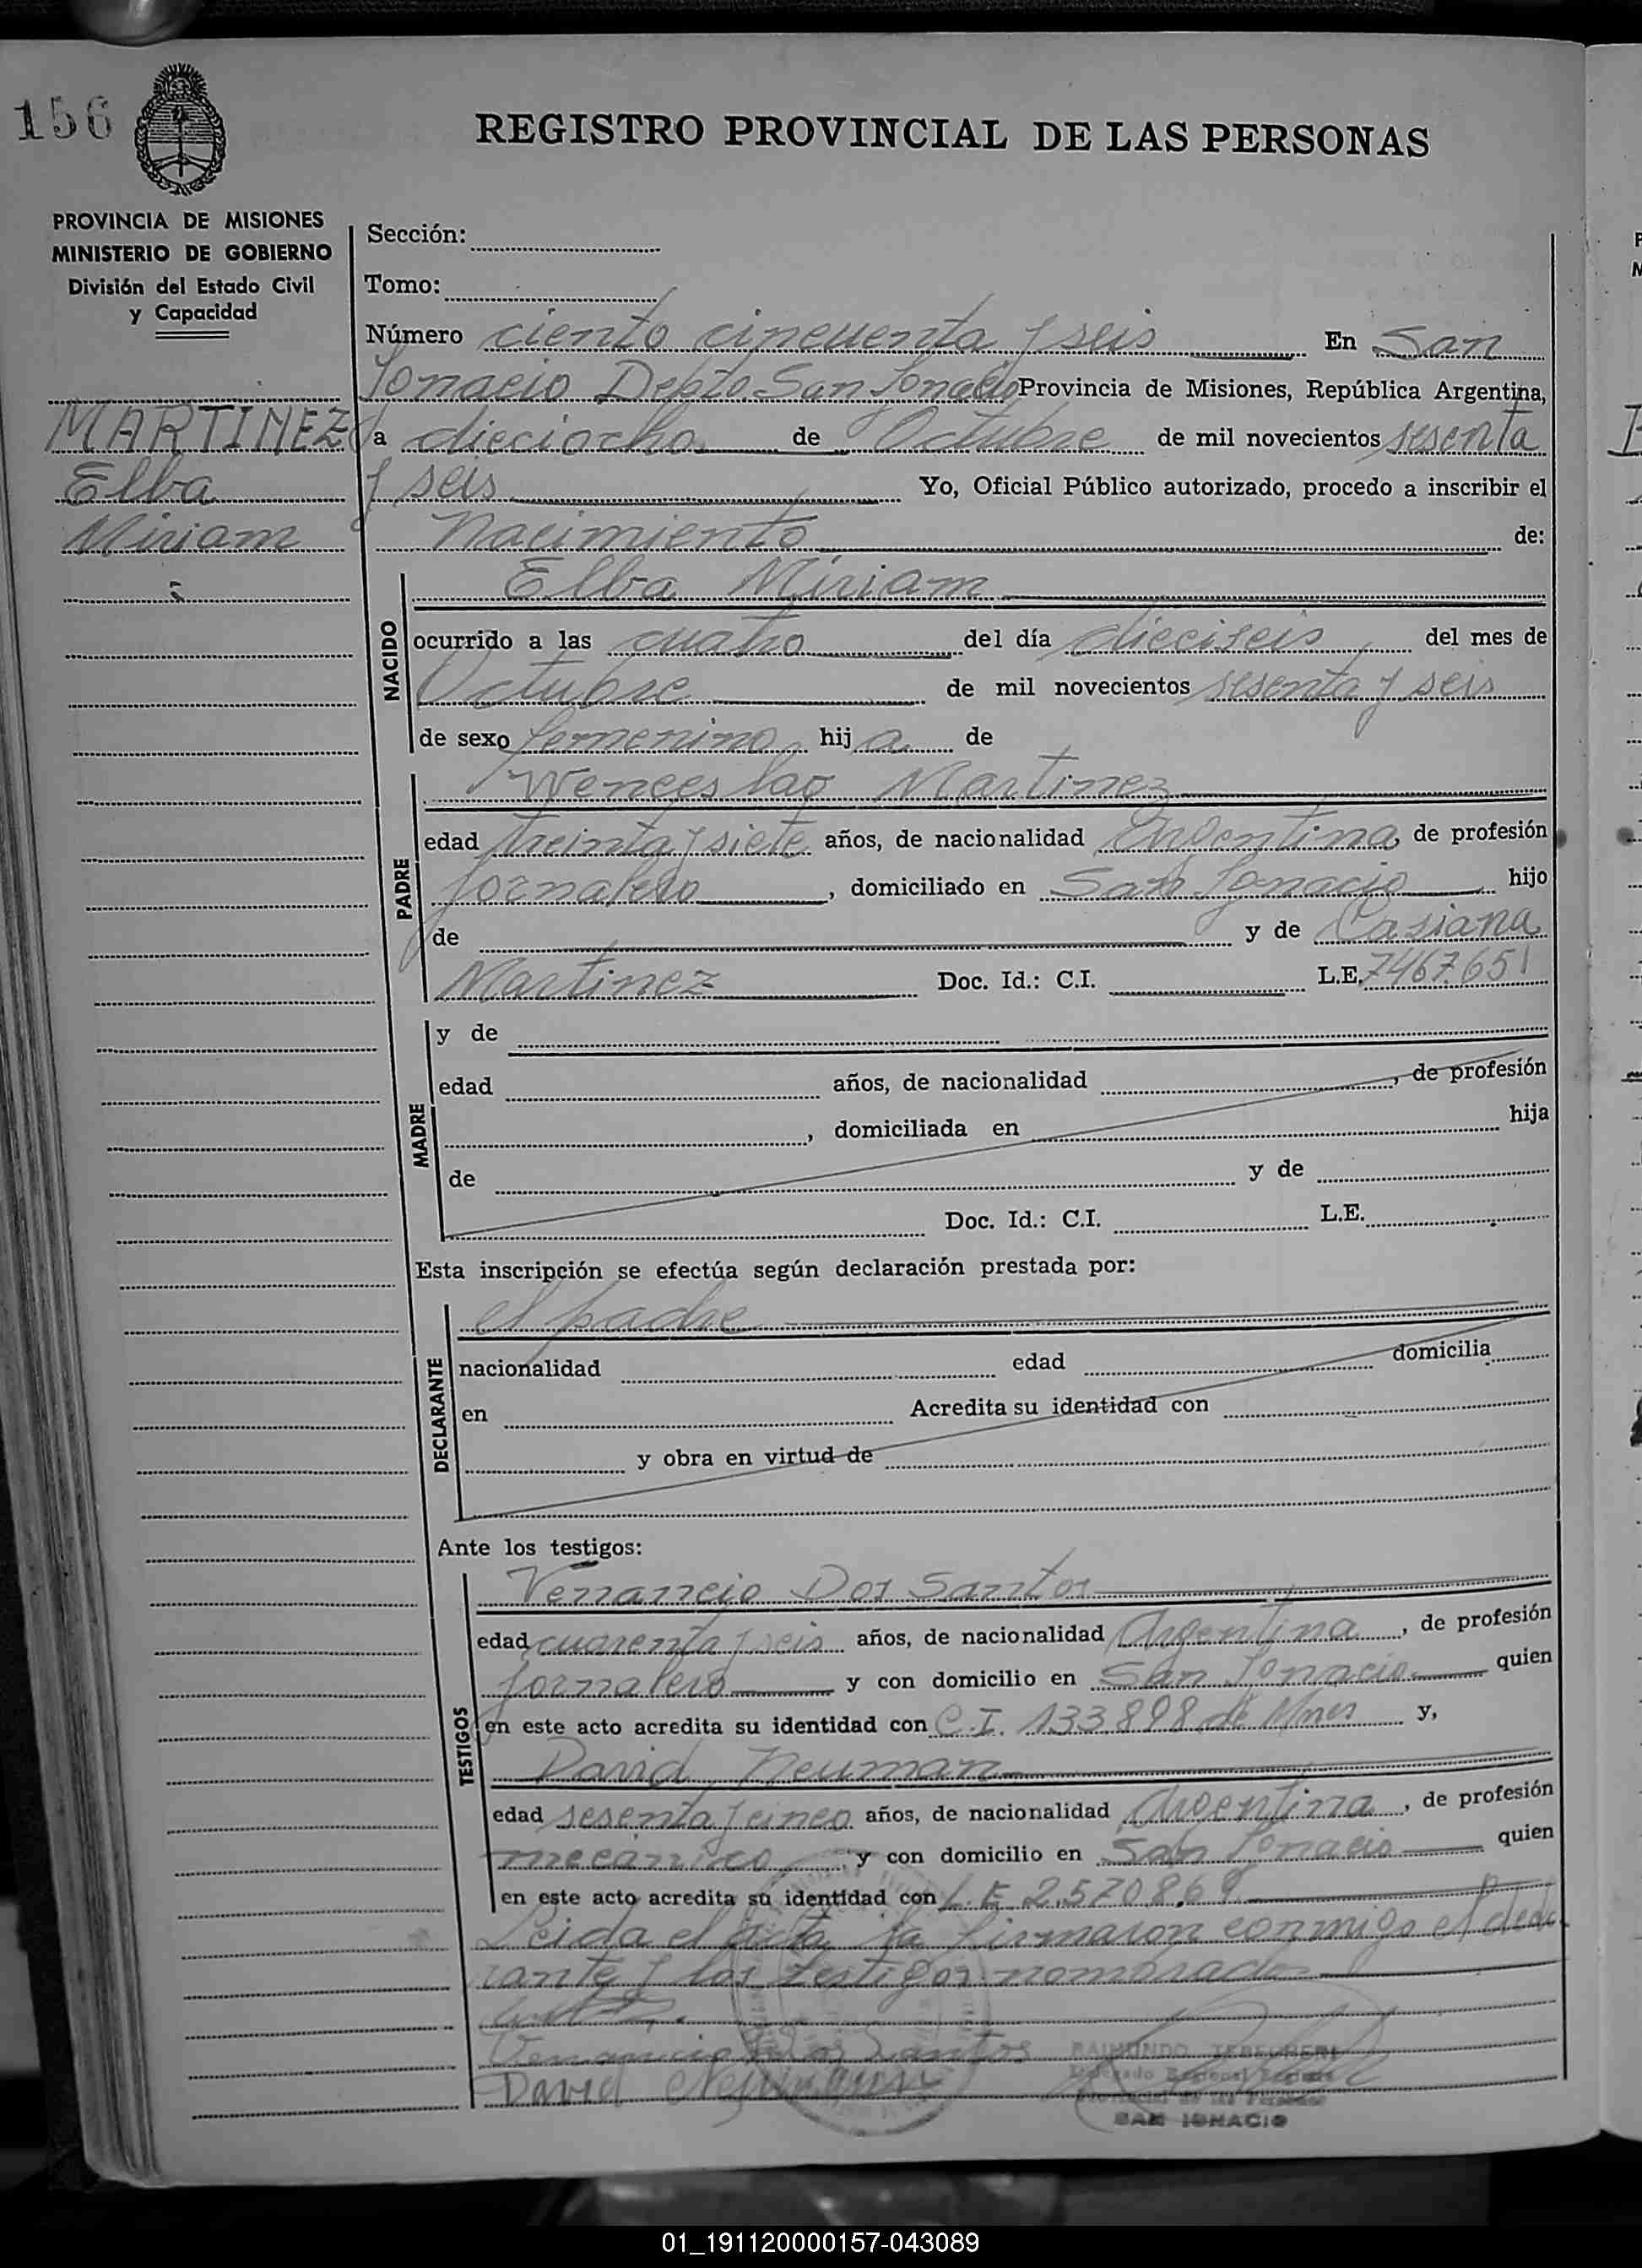 156
REGISTRO PROVINCIAL DE LAS PERSONAS
PROVINCIA DE MISIONES
MINISTERIO DE GOBIERNO
División del Estado Civil
y Capacidad
MARTINEZ
Elba
Miriam
Sección:
Tomo:
Número ciento cincuenta y seis En San
Ignacio Depto. San Ignacio Provincia de Misiones, República Argentina,
a dieciocho de Octubre de mil novecientos sesenta
y seis Yo, Oficial Público autorizado, procedo a inscribir el
Nacimiento de:
NACIDO
Elba Miriam
ocurrido a las cuatro del día dieciseis del mes de
Octubre de mil novecientos sesenta y seis
de sexo femenino hij a de
PADRE
Wenceslao Martinez
edad treinta y siete años, de nacionalidad Argentina, de profesión
jornalero, domiciliado en San Ignacio hijo
de y de Casiana
Martinez Doc. Id.: C.I. L.E. 7467.651
MADRE
y de
edad años, de nacionalidad , de profesión
, domiciliada en hija
de y de
Doc. Id.: C.I. L.E.
Esta inscripción se efectúa según declaración prestada por:
DECLARANTE
el padre
nacionalidad edad domicilia
en Acredita su identidad con
y obra en virtud de
Ante los testigos:
TESTIGOS
Venancio Dos Santos
edad cuarenta y seis años, de nacionalidad Argentina, de profesión
jornalero y con domicilio en San Ignacio quien
en este acto acredita su identidad con C.I. 133898 de Mnes y,
David Neuman
edad sesenta y cinco años, de nacionalidad Argentina, de profesión
mecánico y con domicilio en San Ignacio quien
en este acto acredita su identidad con L.E 2.570.868
Leida el acta la firmaron conmigo el decla
rante y los testigos nombrados
Venancio Dos Santos
David Neuman
RAIMUNDO
SAN IGNACIO
01_191120000157-043089